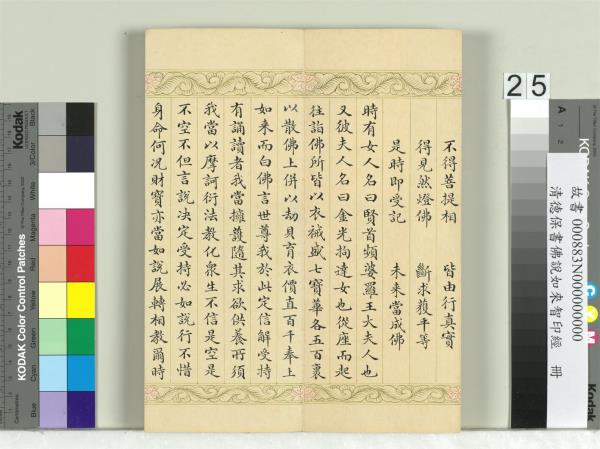 25
故書 000883N000000000
清德保書佛說如來智印經 冊
不得菩提相 皆由行真實
得見然燈佛 斷求獲平等
是時即受記 未来當成佛
時有女人名曰賢首頻婆羅王大夫人也
又彼夫人名曰金光拘達女也從座而起
往詣佛所皆以衣裓盛七寶華各五百裹
以散佛上併以劫貝育衣價直百千奉上
如来而白佛言世尊我於此定信解受持
有誦讀者我當擁護隨其求欲供養所須
我當以摩訶衍法教化衆生不信是空是
不空不但言說决定受持必如說行不惜
身命何況財寶亦當如說展轉相教爾時
KODAK Color Control Patches
Kodak
Blue
Cyan
Green
Yellow
Red
Magenta
White
3/Color
Black
A
1
2
C
Y
M
Kodak